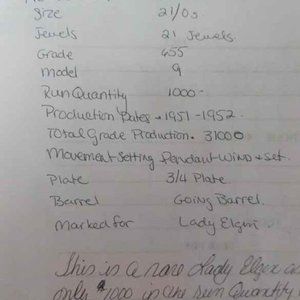 Size 21/0s
Jewels 21 Jewels.
Grade 455
Model 9
Run Quantity 1000-
Production Dates - 1951-1952.
Total Grade Production. 31000
Movement Setting Pendant-Wind & Set.
Plate 3/4 Plate
Barrel Going Barrel.
Marked for Lady Elgin
This is a rare Lady Elgin as
only 1000 in the Run Quantity